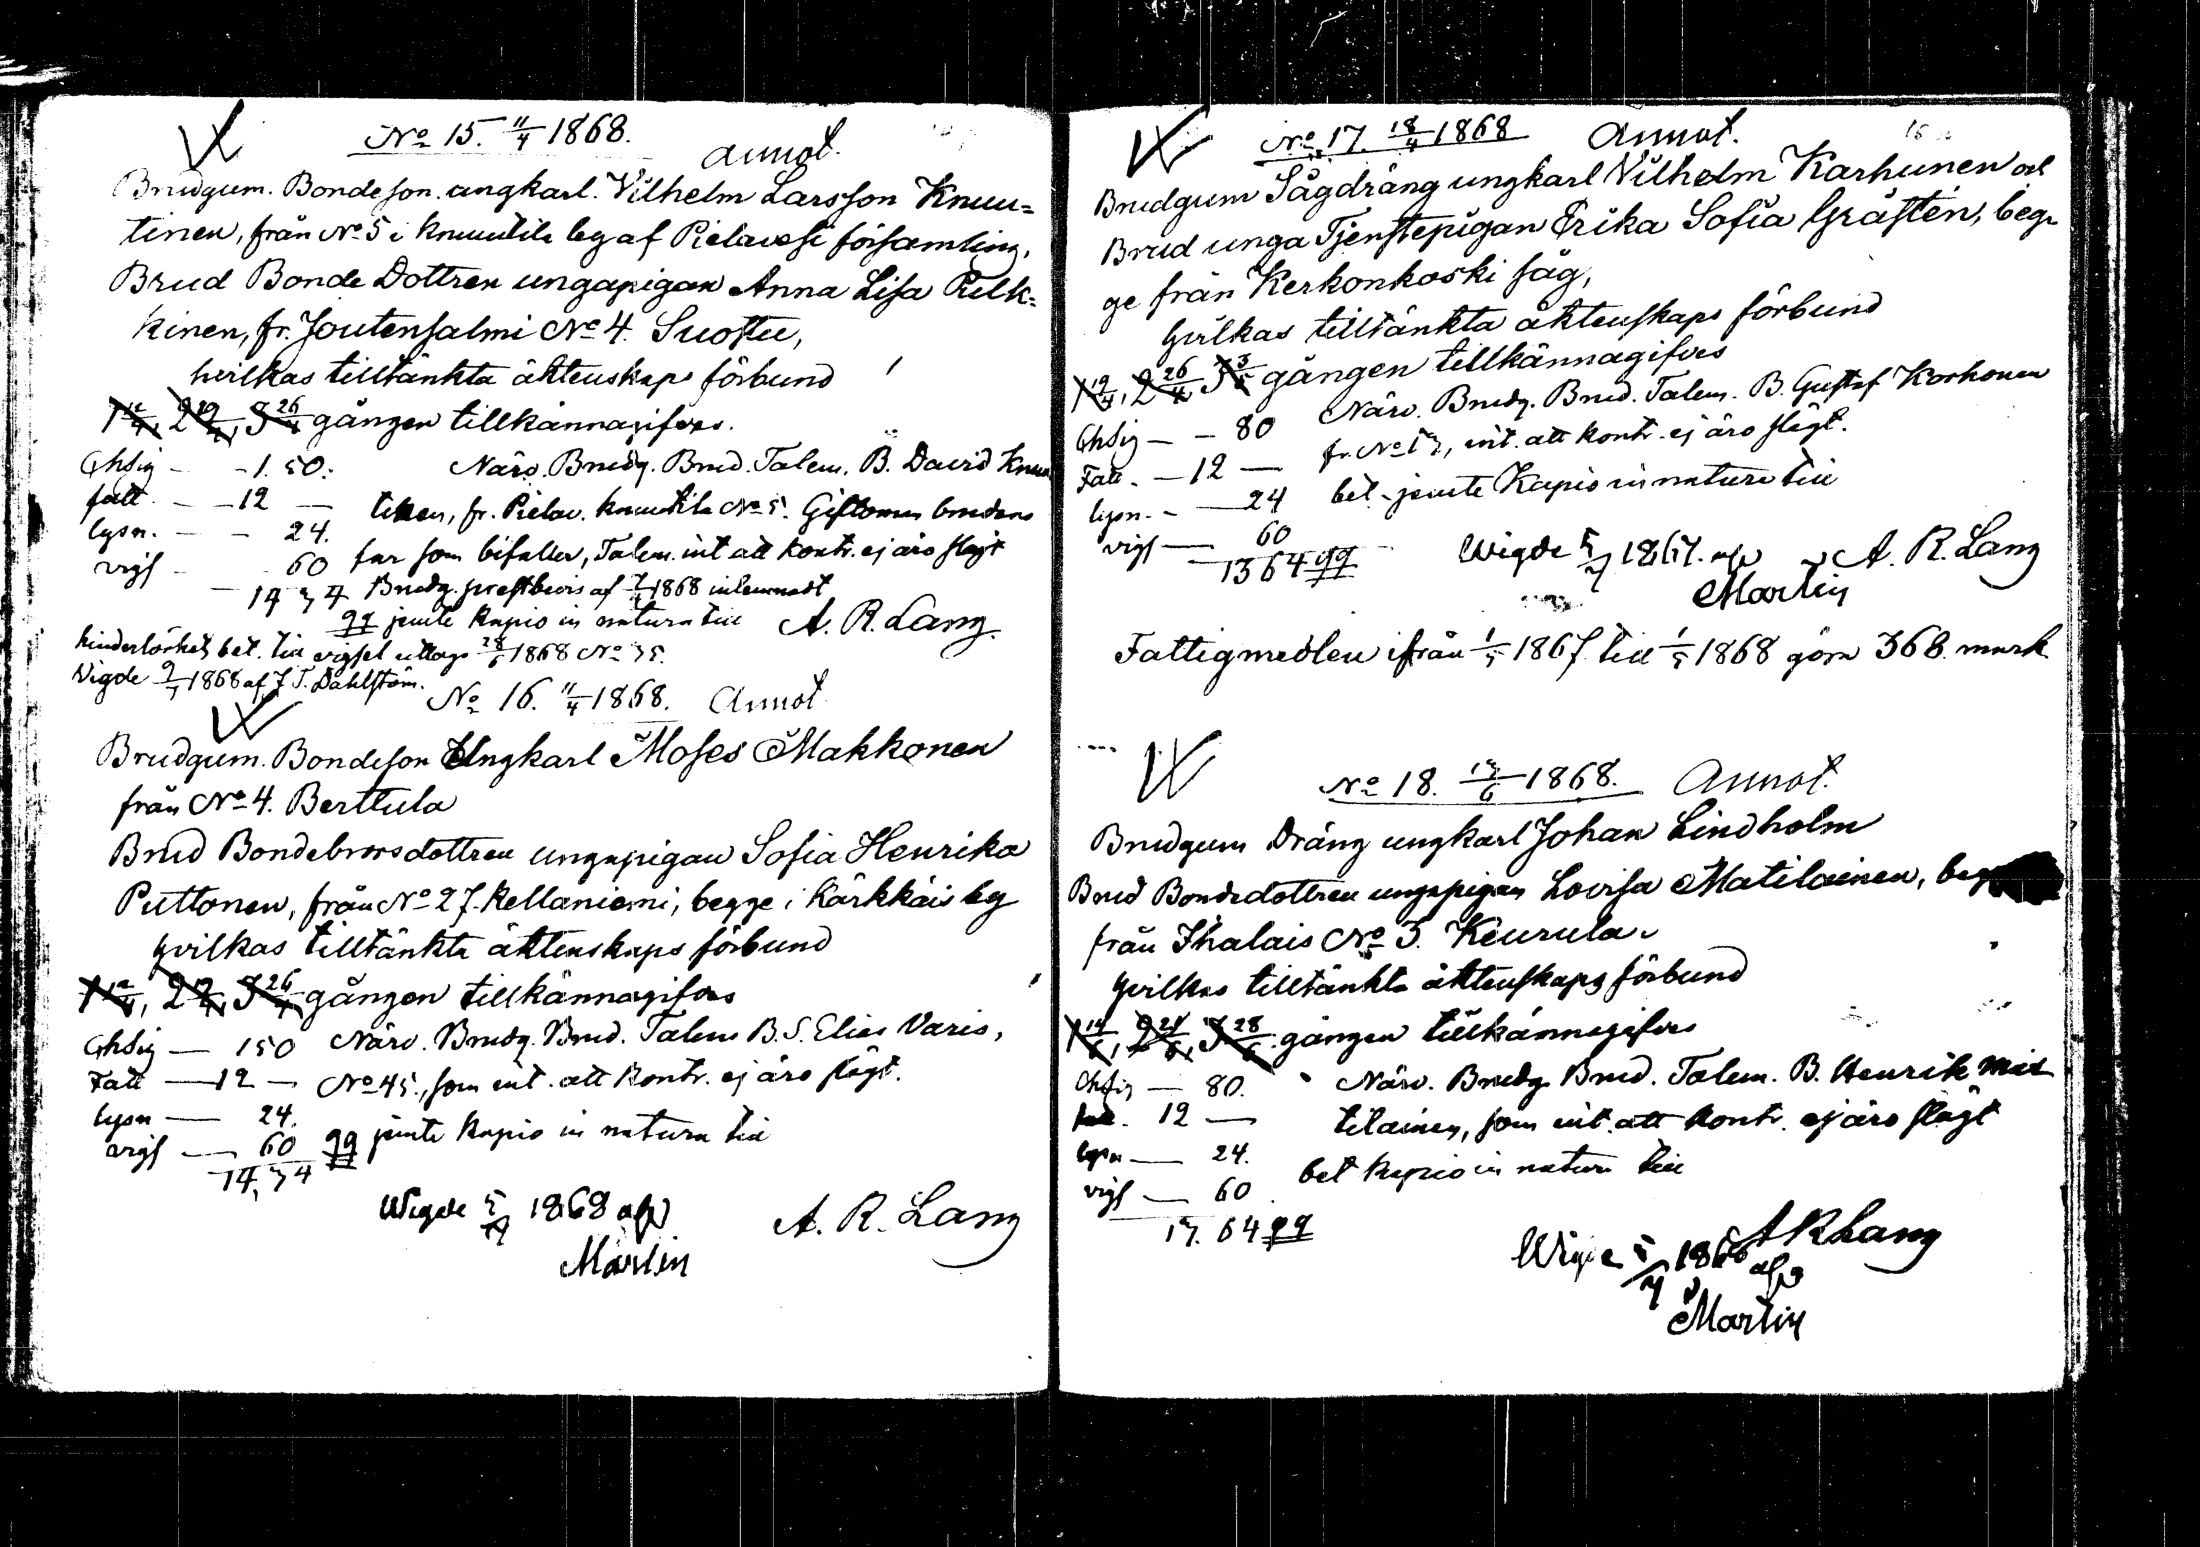 No 15. 11/4 1868.
Annot.
Brudgum. Bondeson. ungkarl. Vilhelm Larsson Knuu=
tinen, från No 5 i Knuutila by af Pielavesi församling,
Brud Bonde Dottren ungapigan Anna Lisa Pulk=
kinen, fr. Joutensalmi No 4. Suostu,
hvilkas tilltänkta äktenskaps förbund
1 12/4, 2 19/4, 3 26/4 gången tillkännagifves.
Ghdsig - - 1. 50. Närv. Brudg. Brud. Talem. B. David Knuu
fatt - - 12 — tinen, fr. Pielav. Knuutila No 5. Giftoman brudens
lysn. - - 24. far som bifaller, Talem. int att kontr. ej äro slägt
vigs - 60 Brudg. prestbevis af 7/4 1868 inlemnadt
14 74 qq jemte Kapio in natura till A. R. Lang.
hinderlöshets bet. till vigsel uttogs 28/6 1868 No 35.
Vigde 9/7 1868 af J T. Dahlström.
No 16. 11/4 1868. Annot
Brudgum. Bondeson Ungkarl Moses Makkonen
från No 4. Berttula
Brud Bondebrorsdottren ungapigan Sofia Henrika
Puttonen, från No 27. Kellaniemi, begge i Kärkkäis by
hvilkas tilltänkta äktenskaps förbund
1 12/4, 2 19/4, 3 26/4 gången tillkännagifves
Ghdsig — 150 Närv. Brudg. Brud. Talem B. S. Elias Varis,
Fatt — 12 — No 45, som int. att kontr. ej äro slägt.
lysn — 24.
vigs — 60 qq jemte Kapio in natura till
14, 74
Wigde 5/7 1868 af A. R. Lang
Martin
No 17. 18/4 1868 Annot. 16
Brudgum Sågdräng ungkarl Vilhelm Karhunen och
Brud unga Tjenstepigan Erika Sofia Gråsten, beg=
ge från Kerkonkoski såg,
hvilkas tilltänkta äktenskaps förbund
1 19/4, 2 26/4 3 3/5 gången tillkännagifves
Ghdsig — - 80 Närv. Brudg. Brud. Talem. B. Gustaf Korhonen
Fatt. — 12 — fr. No 17, int. att kontr. ej äro slägt.
lysn. - — 24 bet. jemte Kapio in natura till
vigs — 60
13 64 qq Wigde 5/7 1867. af A. R. Lang
Martin
Fattigmedlen ifrån 1/5 1867 till 1/5 1868 göra 368. mark
No 18. 13/6 1868. Annot.
Brudgum Dräng ungkarl Johan Lindholm
Brud Bondedottren ungapigan Lovisa Matilainen, beg
från Ihalais No 3. Keurula.
hvilkas tilltänkta äktenskaps förbund
1 14/6, 2 21/6, 3 28/6 gången tillkännagifves
Ghdsig — 80. Närv. Brudg. Brud. Talem. B. Henrik Mat
fatt. 12 — tilainen, som int. att kontr. ej äro slägt
lysn — 24. bet Kapio in natura till
vigs — 60
13. 64 qq
A R Lang
Wigde 5/7 1868 af
Martin